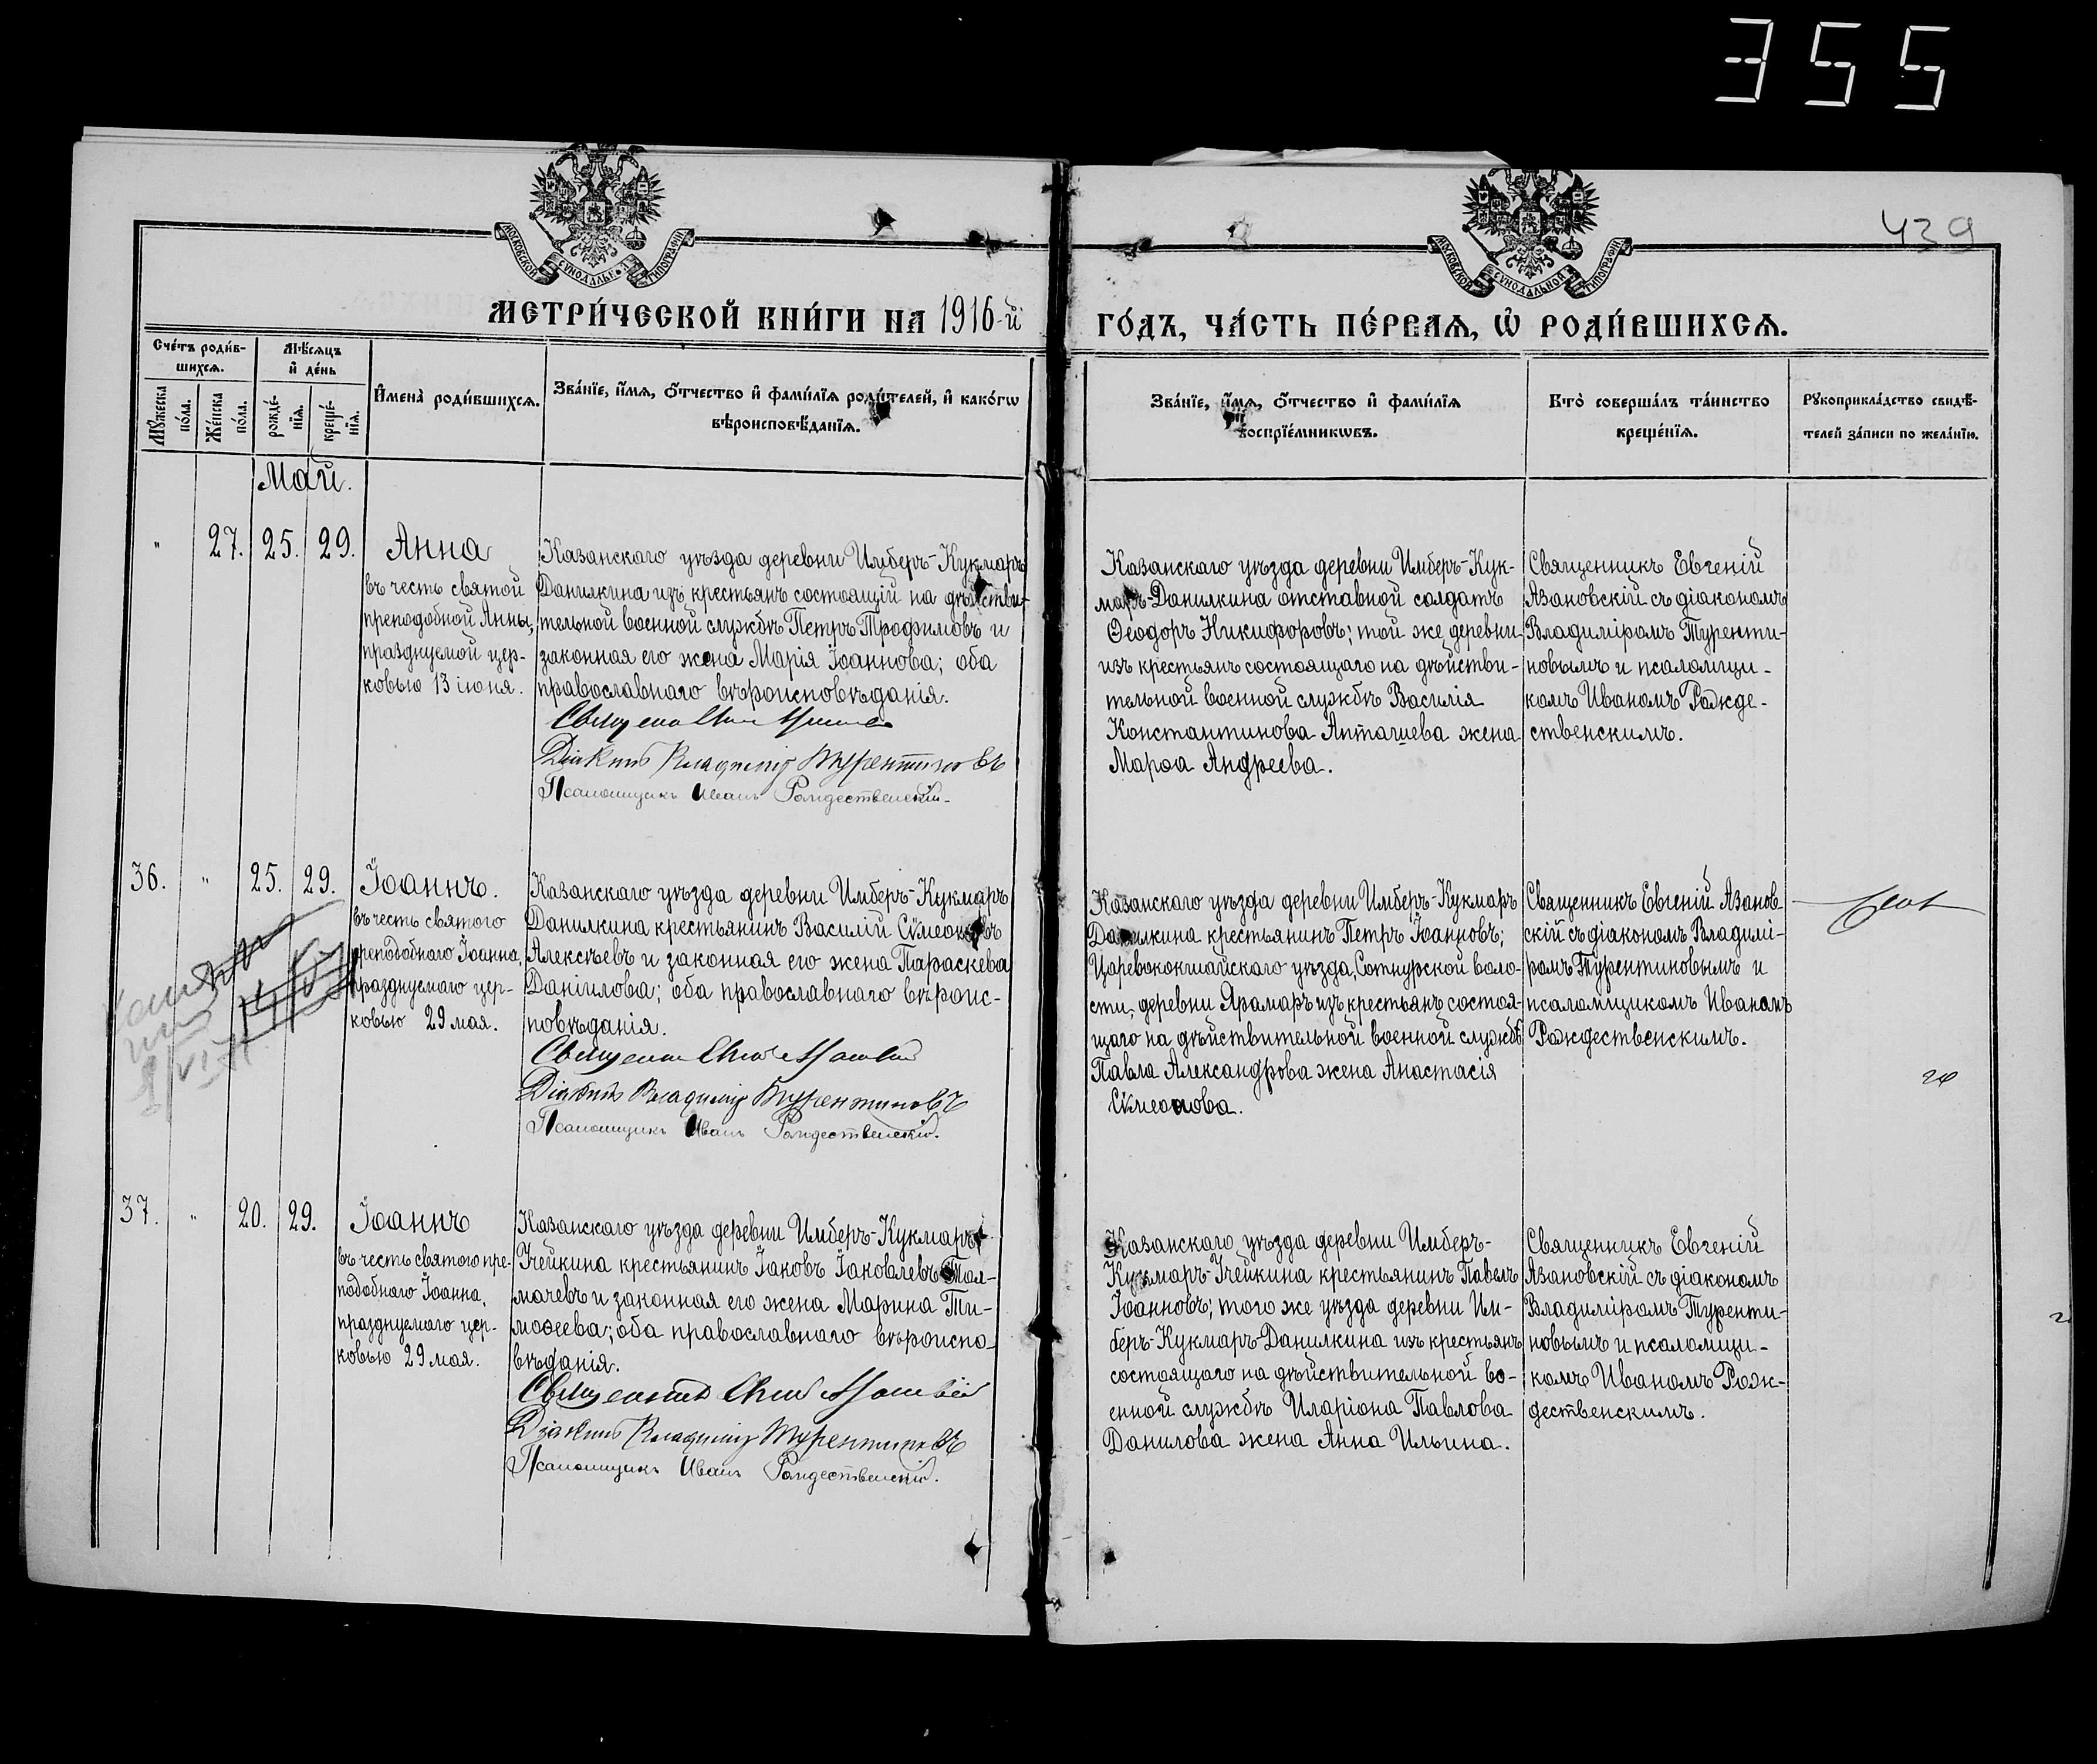 355
439
МОСКОВСКОЙ СУНОДАЛЬНОЙ ТИПОГРАФІИ
МОСКОВСКОЙ СУНОДАЛЬНОЙ ТИПОГРАФІИ
МЕТРИ́ЧЕСКОЙ КНИ́ГИ НА 1916-й
ГО́ДЪ, ЧА́СТЬ ПЕ́РВАѦ, Ѡ РОДИ́ВШИХСѦ.
Сче́тъ роди́в-
шихсѧ.
Мѣ́сѧцъ
и҆ де́нь
Мꙋ́жеска
по́ла.
Же́нска
по́ла.
рожде́-
нїѧ.
креще́-
нїѧ.
И҆мена̀ роди́вшихсѧ.
Зва́нїе, и҆́мѧ, ѻ҆́тчество и҆ фами́лїѧ роди́телей, и҆ како́гѡ
вѣроисповѣ́данїѧ.
Зва́нїе, и҆́мѧ, ѻ҆́тчество и҆ фами́лїѧ
воспрїе́мникѡвъ.
Кто̀ соверша́лъ та́инство
креще́нїѧ.
Рꙋкоприкла́дство свидѣ́-
телей за́писи по жела́нїю.
Май.
" 27. 25. 29.
Анна
въ честь святой
преподобной Анны,
празднуемой цер-
ковью 13 іюня.
Казанскаго уѣзда деревни Имберъ-Кукмаръ
Данилкина изъ крестьянъ состоящій на дѣйстви-
тельной военной службѣ Петръ Трофимовъ и
законная его жена Марія Іоаннова; оба
православнаго вѣроисповѣданія.
Діаконъ Владиміръ Турентиновъ
Псаломщикъ Иванъ Рождественскій.
Казанскаго уѣзда деревни Имберъ-Кук-
маръ-Данилкина отставной солдатъ
Ѳеодоръ Никифоровъ; той же деревни
изъ крестьянъ состоящаго на дѣйстви-
тельной военной службѣ Василія
Константинова Апташева жена
Марѳа Андреева.
Священникъ Евгеній
Азановскій съ діакономъ
Владиміромъ Туренти-
новымъ и псаломщи-
комъ Иваномъ Рожде-
ственскимъ.
36. " 25. 29.
Іоаннъ.
въ честь святого
преподобнаго Іоанна,
празднуемаго цер-
ковью 29 мая.
Казанскаго уѣзда деревни Имберъ-Кукмаръ
Данилкина крестьянинъ Василій Сѵмеоновъ
Алексѣевъ и законная его жена Параскева
Даніилова; оба православнаго вѣроис-
повѣданія.
Діаконъ Владиміръ Турентиновъ
Псаломщикъ Иванъ Рождественскій.
Казанскаго уѣзда деревни Имберъ-Кукмаръ
Данилкина крестьянинъ Петръ Іоанновъ;
Царевококшайскаго уѣзда, Сотнурской воло-
сти, деревни Ярамаръ изъ крестьянъ состоя-
щаго на дѣйствительной военной службѣ
Павла Александрова жена Анастасія
Сѵмеонова.
Священникъ Евгеній Азанов-
скій съ діакономъ Владимі-
ромъ Турентиновымъ и
псаломщикомъ Иваномъ
Рождественскимъ.
37. " 20. 29.
Іоаннъ
въ честь святого пре-
подобнаго Іоанна,
празднуемаго цер-
ковью 29 мая.
Казанскаго уѣзда деревни Имберъ-Кукмаръ
Учейкина крестьянинъ Іаковъ Іаковлевъ Тол-
мачевъ и законная его жена Марина Ти-
моѳеева; оба православнаго вѣроиспо-
вѣданія.
Діаконъ Владиміръ Турентиновъ
Псаломщикъ Иванъ Рождественскій.
Казанскаго уѣзда деревни Имберъ-
Кукмаръ-Учейкина крестьянинъ Павелъ
Іоанновъ; того же уѣзда деревни Им-
беръ-Кукмаръ-Данилкина изъ крестьянъ
состоящаго на дѣйствительной во-
енной службѣ Иларіона Павлова
Данилова жена Анна Ильина.
Священникъ Евгеній
Азановскій съ діакономъ
Владиміромъ Туренти-
новымъ и псаломщи-
комъ Иваномъ Рож-
дественскимъ.